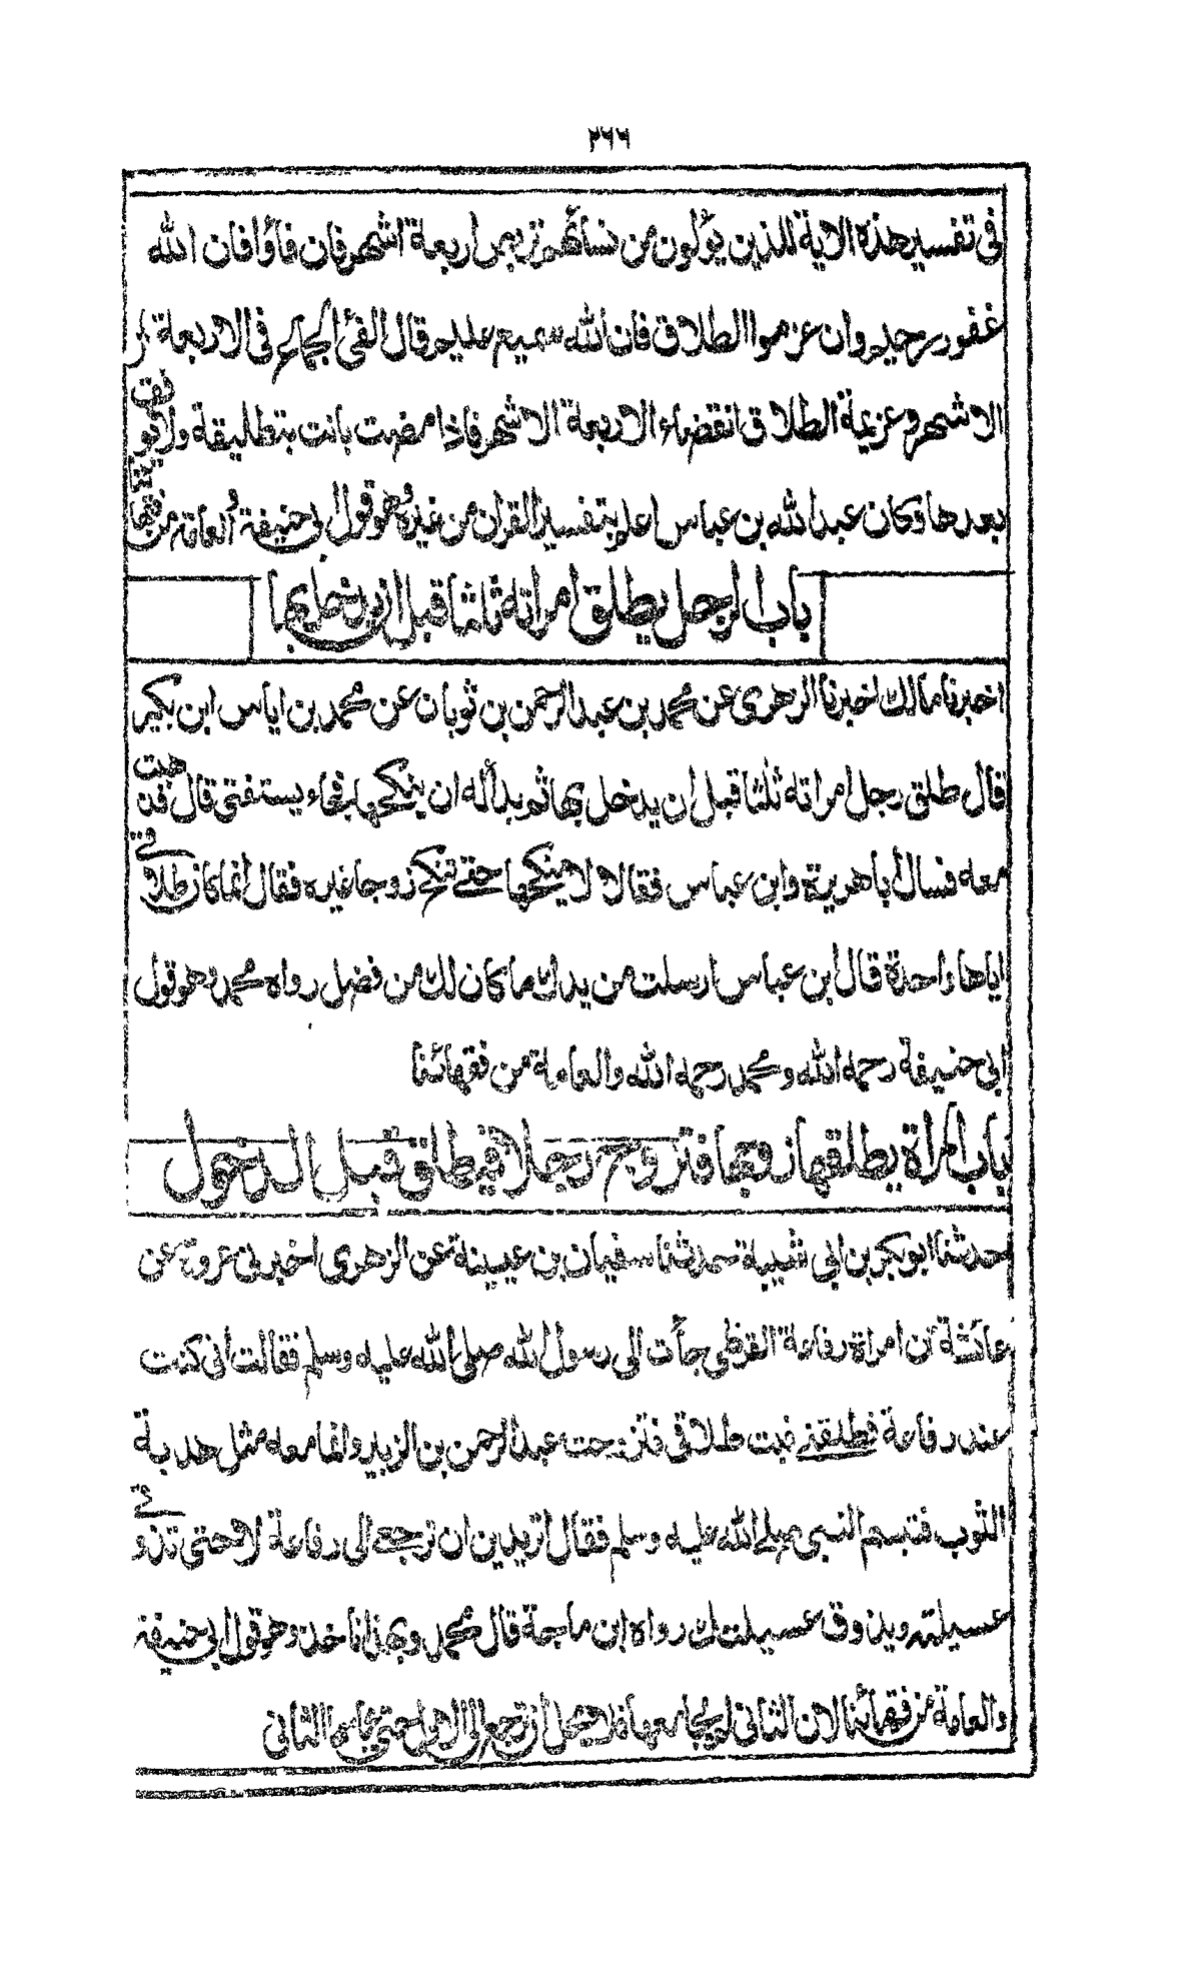 ٢٦٦
فى تفسير هذه الاية للذين يؤلون من نسائهم تربص اربعة اشهر فان فاؤا فان الله
غفور رحيم وان عزموا الطلاق فان الله سميع عليم قال الفئ الجماع فى الاربعة
الاشهر وعزيمة الطلاق انقضاء الاربعة الاشهر فاذا مضت بانت بتطليقة ولا يوقف
بعدها وكان عبد الله بن عباس اعلم بتفسير القران من غيره وهو قول ابى حنيفة والعامة من فقهائنا
باب الرجل يطلق امراته ثلاثا قبل ان يدخل بها
اخبرنا مالك اخبرنا الزهرى عن محمد بن عبد الرحمن بن ثوبان عن محمد بن اياس ابن بكير
قال طلق رجل امراته ثلثا قبل ان يدخل بها ثم بدأ له ان ينكحها فجاء يستفتى قال فذهبت
معه فسال ابا هريرة وابن عباس فقالا لا ينكحها حتے تنكح زوجا غيره فقال انما كان طلاقے
اياها واحدة قال ابن عباس ارسلت من يدك ما كان لك من فضل رواه محمد وهو قول
ابى حنيفة رحمه الله ومحمد رحمه الله والعامة من فقهائنا
باب المراة يطلقها زوجها فتزوج رجلا فيطلق قبل الدخول
حدثنا ابو بكر بن ابى شيبة حدثنا سفيان بن عيينة عن الزهرى اخبرنى عروة عن
عائشة ان امراة رفاعة القرظى جأت الى رسول الله صلى الله عليه وسلم فقالت انى كنت
عند رفاعة فطلقنے فبت طلاقى فتزوجت عبد الرحمن بن الزبير وانما معه مثل هدبة
الثوب فتبسم النبى صلے الله عليه وسلم فقال اتريدين ان ترجعے الى رفاعة لا حتى تذوقے
عسيلته ويذوق عسيلتك رواه ابن ماجة قال محمد وبهذا ناخذ وهو قول ابى حنيفة
والعامة من فقهائنا لان الثانى لم يجامعها فلا يحل ان ترجع الى الاول حتى يجامعها الثانى